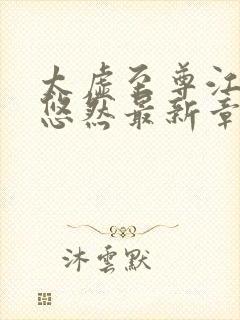 太虚至尊江
悠然最新章
沐雲默